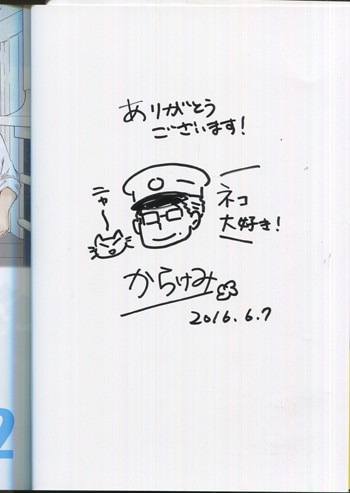 ありがとう
ございます!
ニャ〜
ネコ
大好き!
からけみ
2016.6.7
2